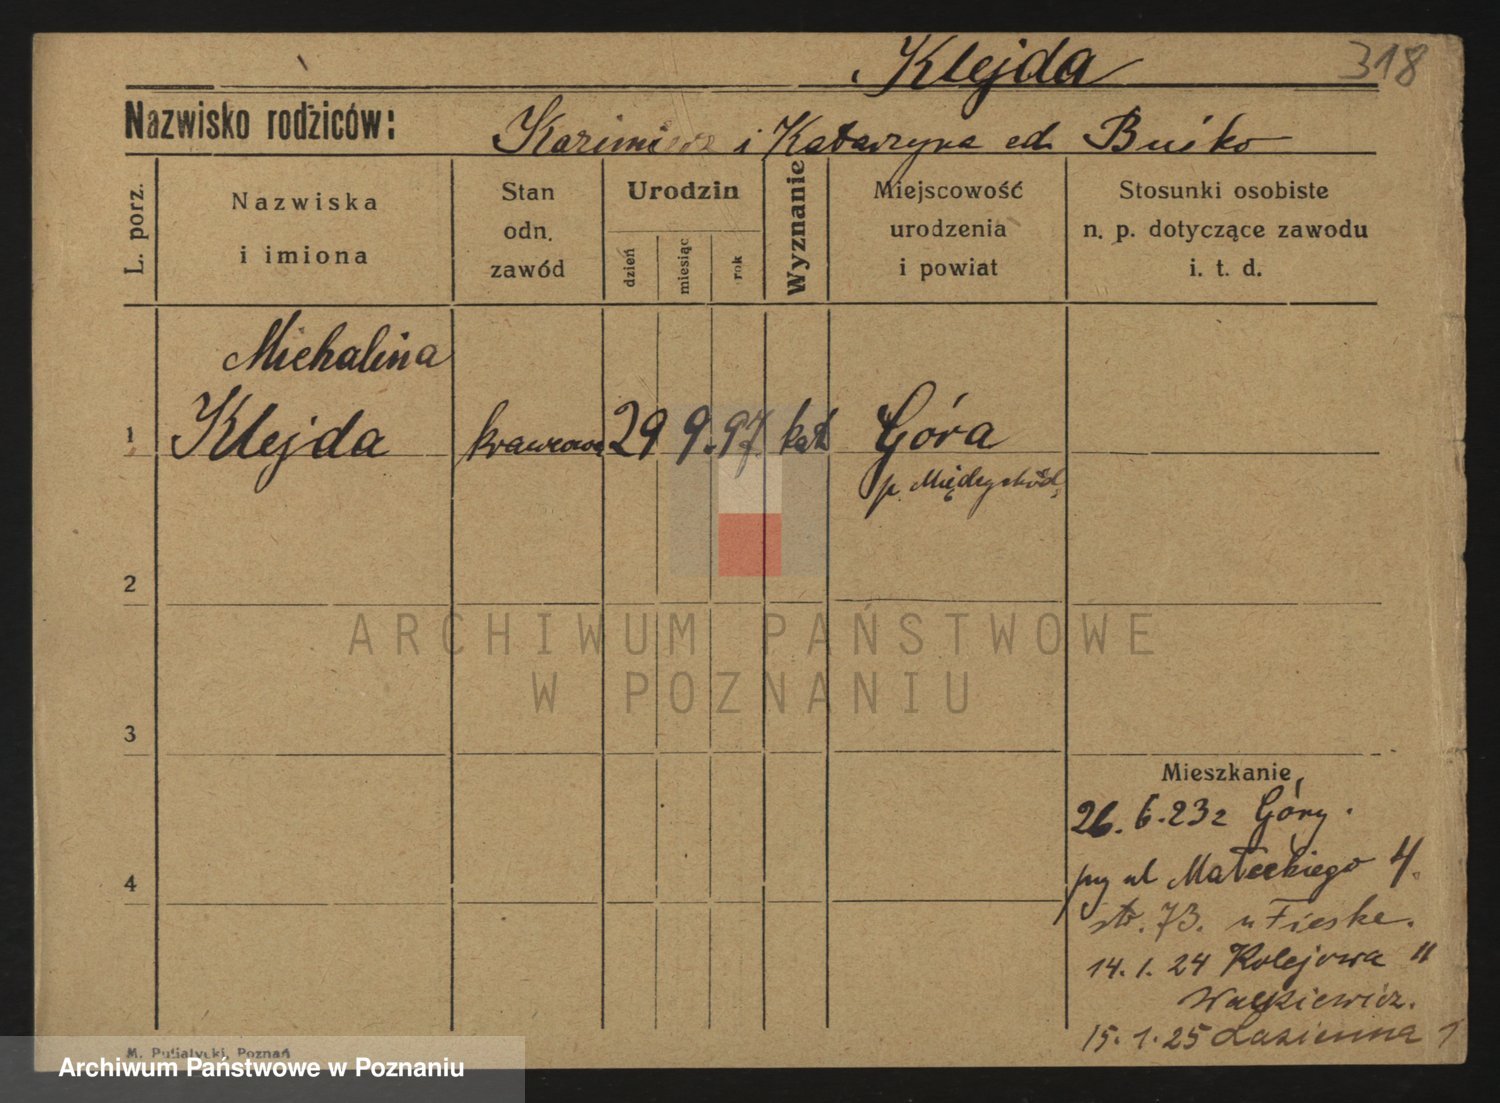 Klejda
318
Nazwisko rodziców:
Kazimierz i Katarzyna
L. porz.
Nazwiska
i imiona
Stan
odn.
zawód
Urodzin
dzień
miesiąc
rok
Wyznanie
Miejscowość
urodzenia
i powiat
Stosunki osobiste
n. p. dotyczące zawodu
i. t. d.
Michalina
1 Klejda krawcowa 29 9. 97 kat Góra
p. Międzychód
2
ARCHIWUM PAŃSTWOWE
W POZNANIU
3
Mieszkanie
26. 6. 23 z Góry.
4
przy ul Małeckiego 4.
str. 73. u Fieske.
14. 1. 24 Kolejowa 11
15. 1. 25 Łazienna 1
M. Putiatycki, Poznań
Archiwum Państwowe w Poznaniu